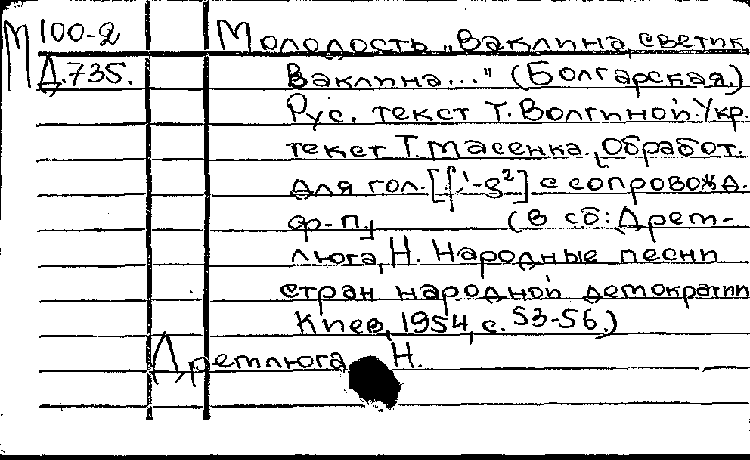 М 100-2 Молодость „Ваклина, светик
Д.735. Ваклина..." (Болгарская.)
Рус. текст Т. Волгиной. Укр.
текст Т. Масенка. Обработ.
для гол. [f¹-g²] с сопровожд.
ф-п. (В сб: Дрем-
люга, Н. Народные песни
стран народной демократии
Киев, 1954, с. 53-56.)
Дремлюга Н.